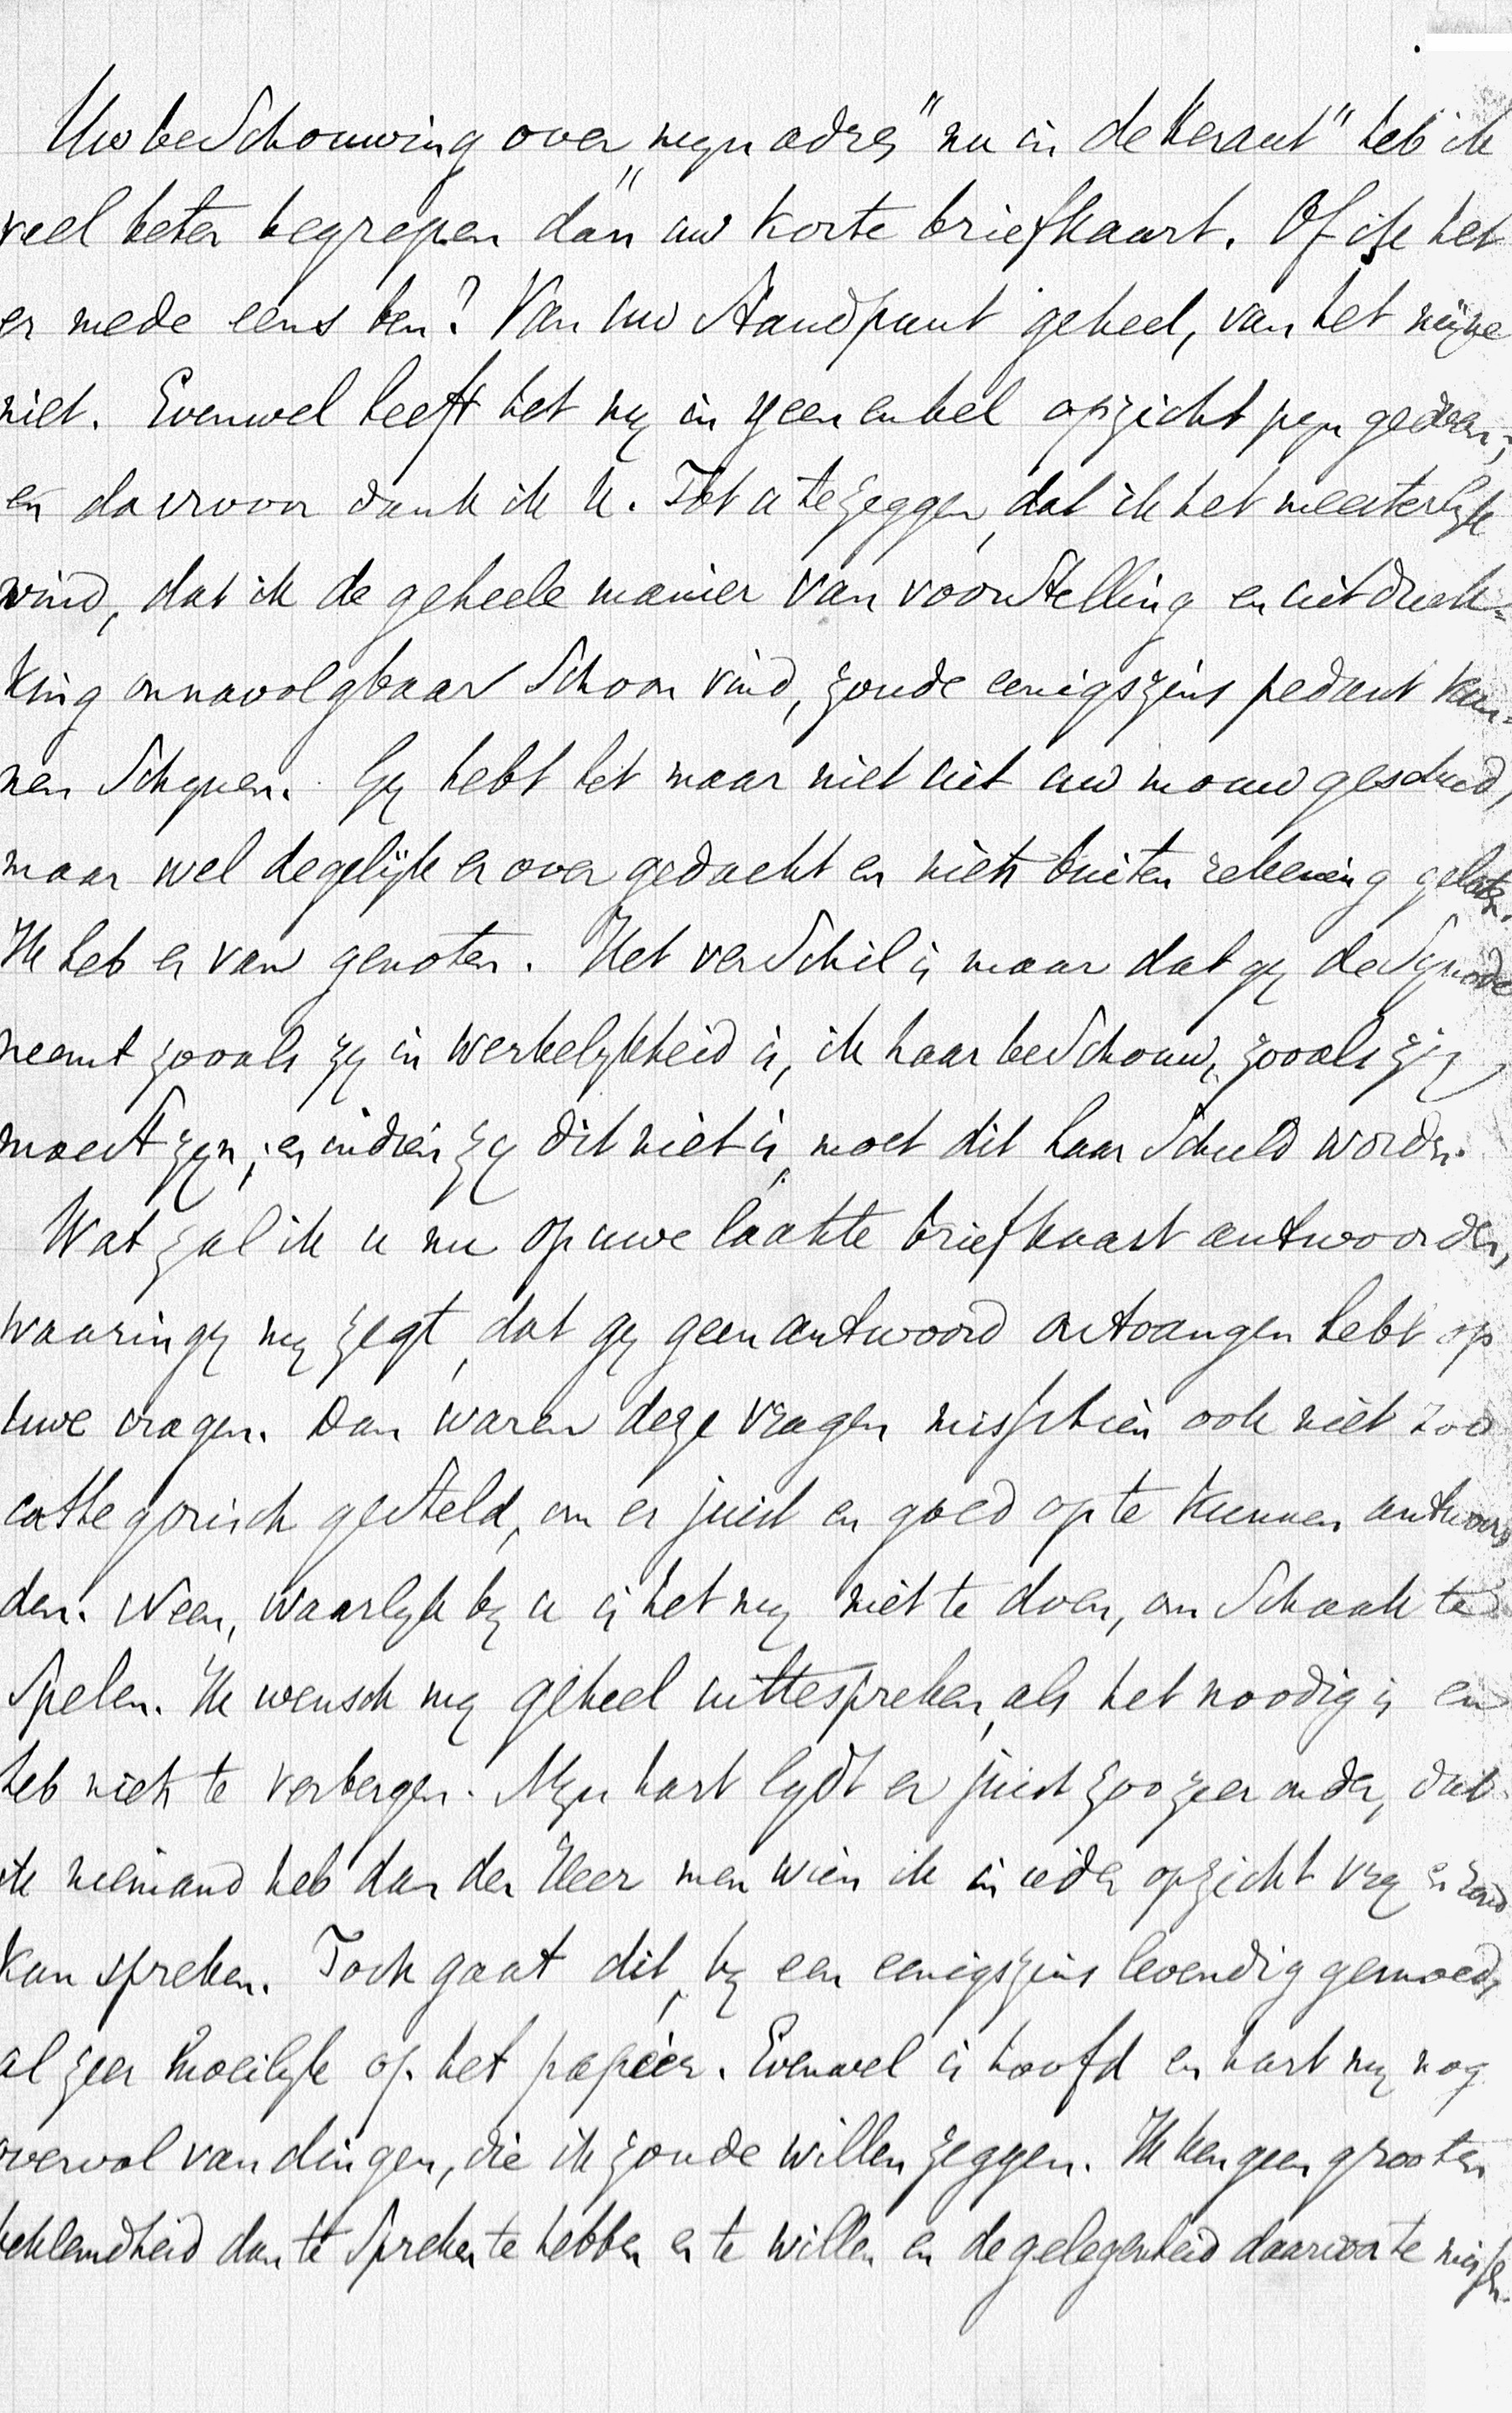 Uw beschouwing over „mijn adres" nu in de Heraut" heb ik
veel beter begrepen dan uw korte briefkaart. Of ik het
er mede eens ben? Van uw standpunt geheel, van het mijne
niet. Evenwel heeft het my in geen enkel opzicht pyn gedaan,
en daarvoor dank ik U. Tot u te zeggen, dat ik het meesterlyk
vind, dat ik de geheele manier van voorstelling en uitdruk-
king onnavolgbaar schoon vind, zoude eenigszins pedant kun-
nen schynen. Gy hebt het maar niet uit uw mouw geschud,
maar wel degelijk er over gedacht en niets buiten rekening gelaten.
Ik heb er van genoten. Het verschil is maar dat gy de Synode
neemt zooals zy in werkelykheid is, ik haar beschouw, zooals zij
moest zyn; en indien zy dit niet is, moet dit haar schuld worden.
Wat zal ik u nu op uwe laatste briefkaart antwoorden,
waarin gy my zegt, dat gy geen antwoord ontvangen hebt op
uwe vragen. Dan waren deze vragen misschien ook niet zoo
cathegorisch gesteld, om er juist en goed op te kunnen antwoor
den. Neen, waarlyk by u is het my niet te doen, om schaak te
spelen. Ik wensch my geheel uittespreken, als het noodig is en
heb niets te verbergen. Myn hart lydt er juist zoo zeer onder, dat
ik niemand heb dan den Heer met wien ik in ieder opzicht vry en
kan spreken. Toch gaat dit, by een eenigszins levendig gemoed,
al zeer moeilyk op het papier. Evenwel is hoofd en hart my nog
overvol van dingen, die ik zoude willen zeggen. Ik ken geen grooter
beklemdheid dan te spreken te hebben en te willen en de gelegenheid daarvoor te missen.